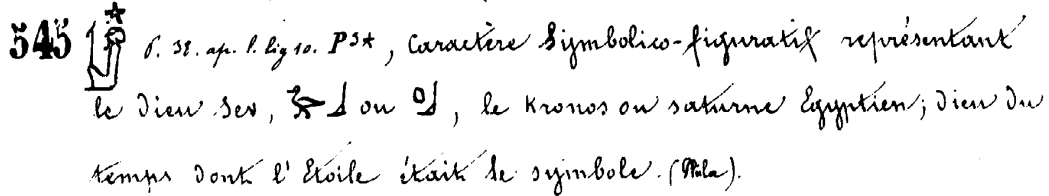 545 P. 38. ap. l. lig 10. P3*, Caractère Symbolico-figuratif représentant
le Dieu Sev, ou, le Kronos ou saturne Egyptien; Dieu Du
temps dont l'Etoile était le symbole.